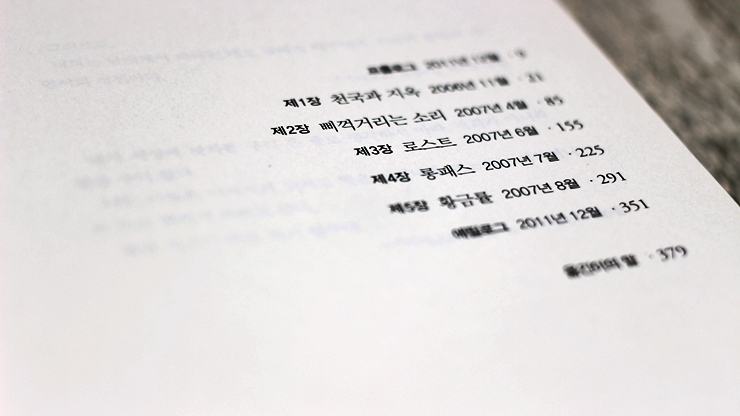 프롤로그 2011년 12월 · 9
제1장 천국과 지옥 2006년 11월 · 21
제2장 삐걱거리는 소리 2007년 4월 · 85
제3장 로스트 2007년 6월 · 155
제4장 롱패스 2007년 7월 · 225
제5장 황금률 2007년 8월 · 291
에필로그 2011년 12월 · 351
옮긴이의 말 · 379